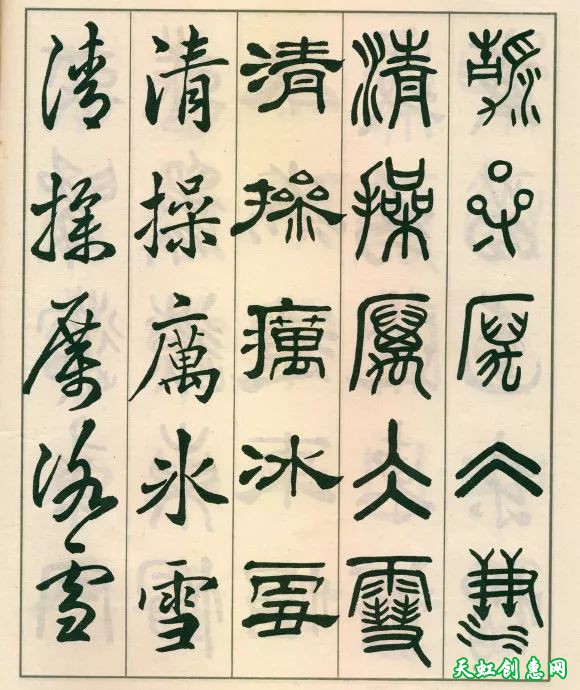 清操厲冰雪
清操厲冰雪
清操癘冰雪
清操厲冰雪
清操厲冰雪
天虹创惠网